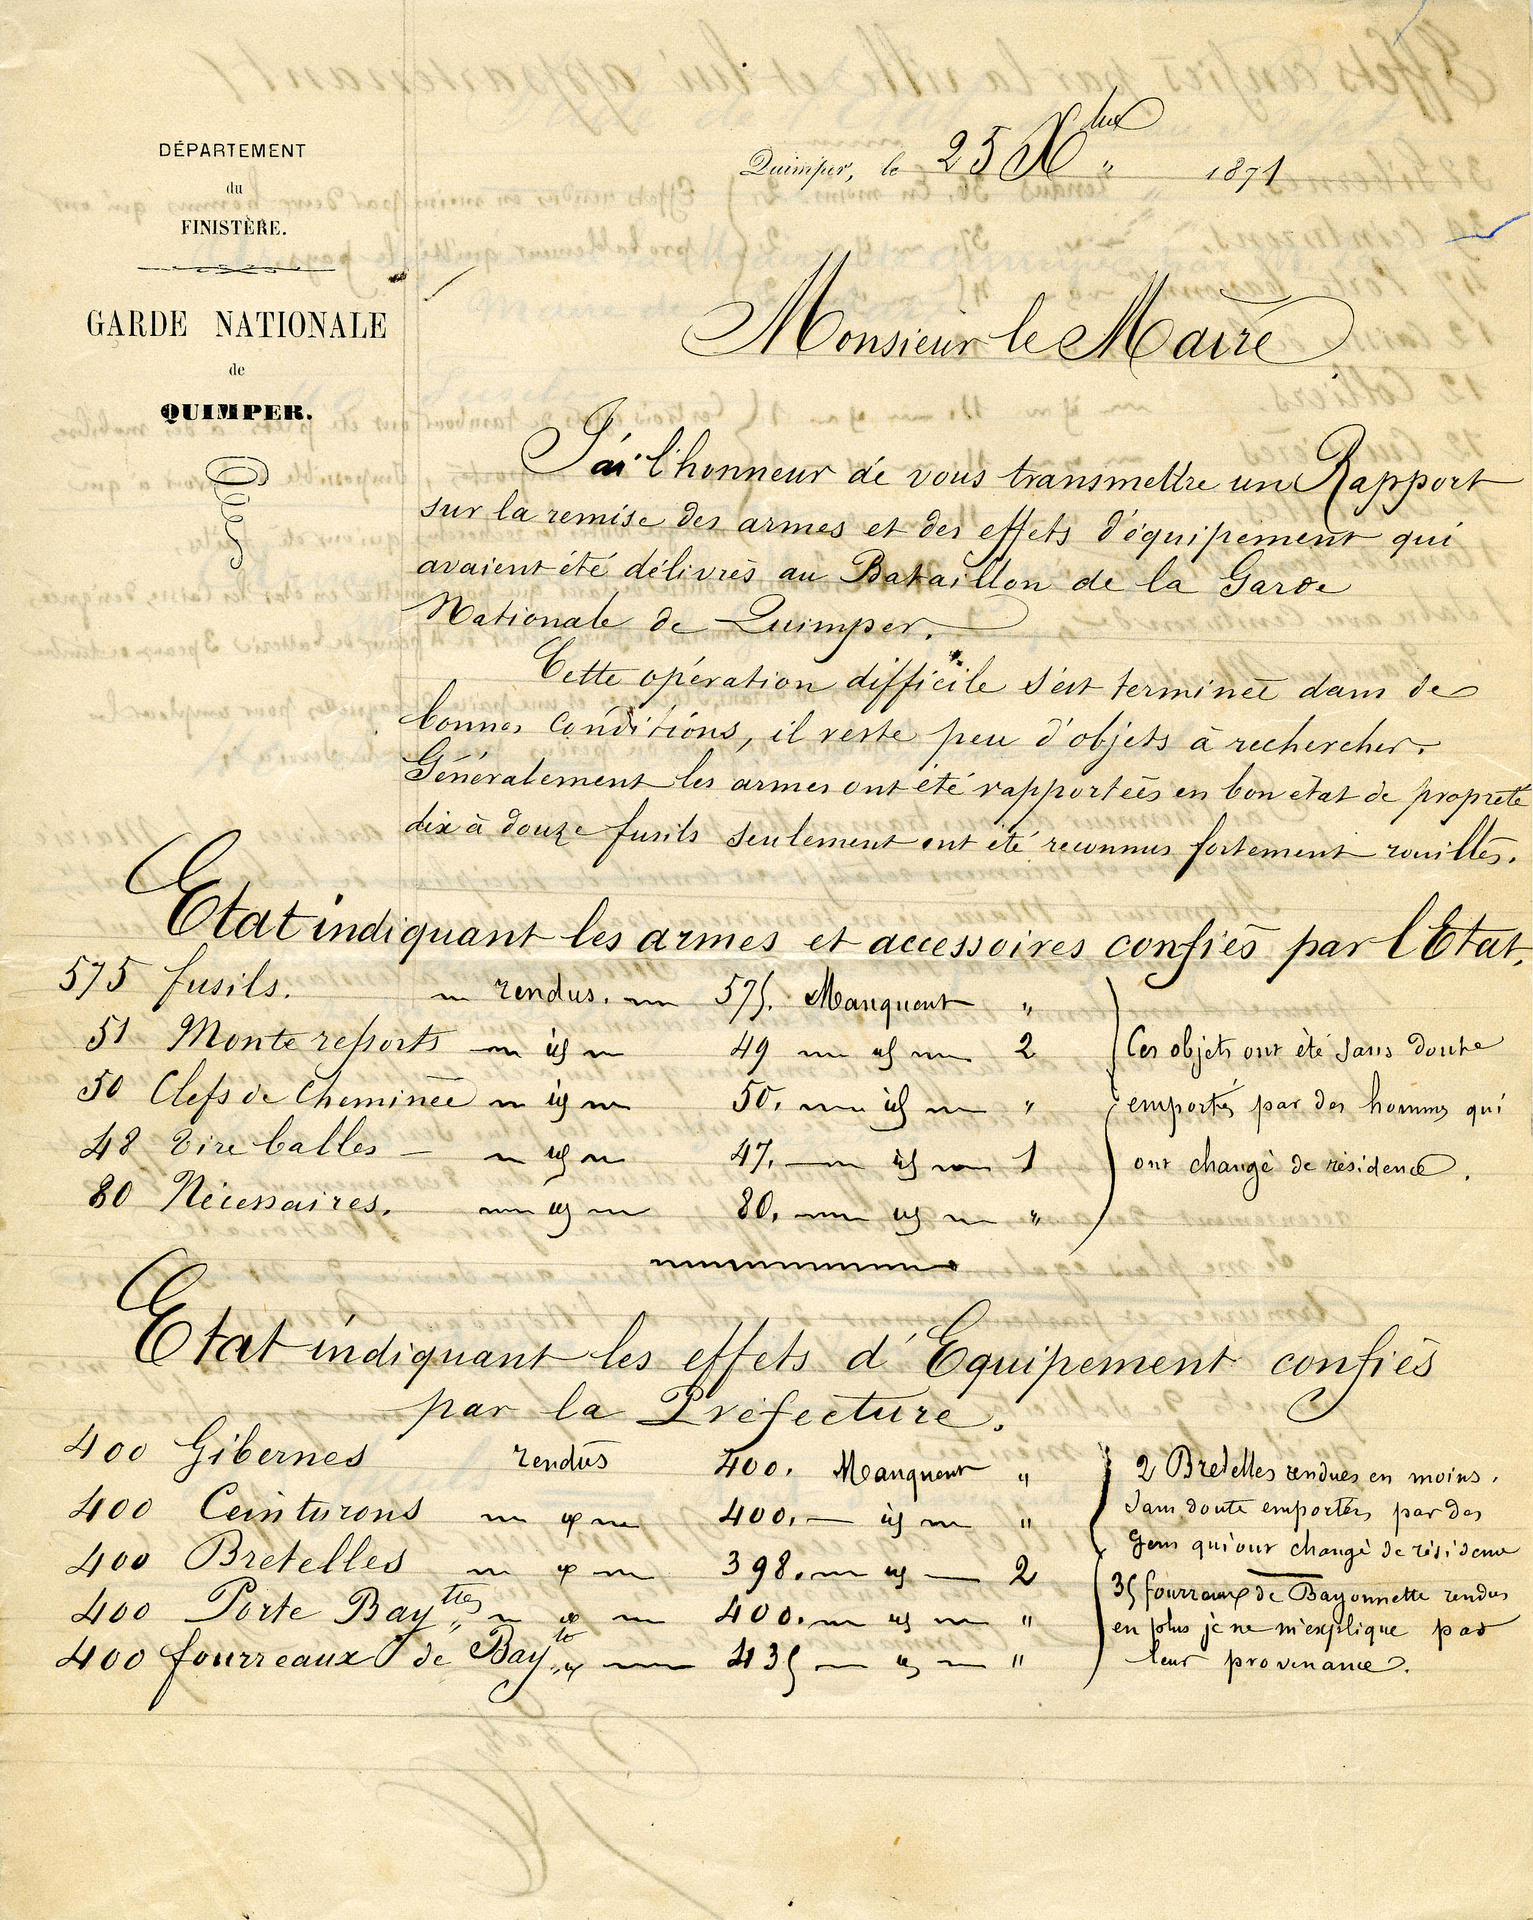 DÉPARTEMENT
du
FINISTÈRE.
GARDE NATIONALE
de
QUIMPER.
Quimper, le 25 Xbre 1871
Monsieur le Maire
J'ai l'honneur de vous transmettre un Rapport
sur la remise des armes et des effets d'équipement qui
avaient été délivrés au Bataillon de la Garde
Nationale de Quimper.
Cette opération difficile s'est terminée dans de
bonnes conditions, il reste peu d'objets à rechercher.
Généralement les armes ont été rapportées en bon état de propreté
dix à douze fusils seulement ont été reconnus fortement rouillés.
Etat indiquant les armes et accessoires confiés par l'Etat.
575 fusils. rendus. 575. Manquent "
51 Monte ressorts id 49 id 2
50 Clefs de Cheminée id 50. id "
48 tire balles id 47. id 1
80 Nécessaires. id 80. id "
Ces objets ont été sans doute
emportés par des hommes qui
ont changé de résidence.
Etat indiquant les effets d'Equipement confiés
par la Préfecture.
400 Gibernes rendus 400. Manquent "
400 Ceinturons 400. id "
400 Bretelles 398. id 2
400 Porte Bayttes 400. id "
400 fourreaux de Bayte 435 id "
2 Bretelles rendues en moins.
Sans doute emportées par des
gens qui ont changé de résidence
35 fourreaux de Bayonnette rendus
en plus je ne m'explique pas
leur provenance.